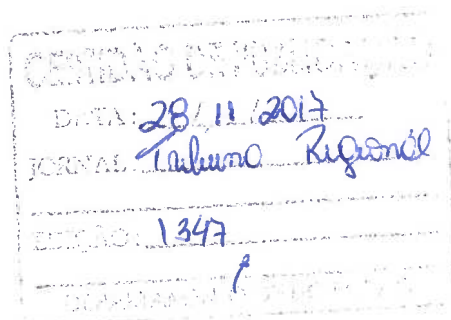 CERTIDÃO DE PUBLICAÇÃO
DATA: 28/11/2017
JORNAL Tribuna Regional
EDIÇÃO: 1347